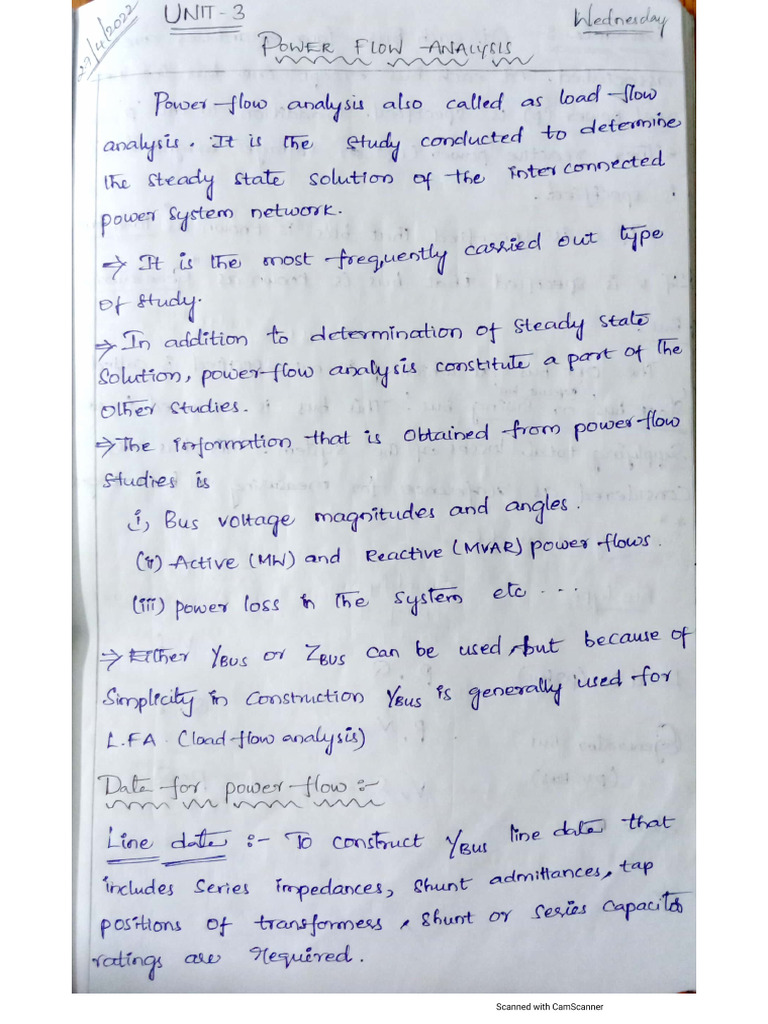 27/4/2022 UNIT-3 Wednesday
POWER FLOW ANALYSIS
Power-flow analysis also called as load-flow
analysis. It is the study conducted to determine
the steady state solution of the interconnected
power system network.
→ It is the most frequently carried out type
of study.
→ In addition to determination of steady state
solution, power-flow analysis constitute a part of the
other studies.
→ The information that is obtained from power-flow
studies is
i) Bus voltage magnitudes and angles.
(ii) Active (MW) and Reactive (MVAR) power flows.
(iii) power loss in the system etc ...
→ Either YBUS or ZBUS can be used, but because of
simplicity in construction YBUS is generally used for
L.F.A (load flow analysis)
Date for power-flow :-
Line date :- To construct YBUS line date that
includes series impedances, shunt admittances, tap
positions of transformers, shunt or series capacitor
ratings are required.
Scanned with CamScanner